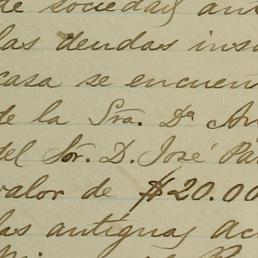 de sociedad ant
las deudas inso
casa se encuen
de la Sra. Dª An
del Sor. D. José Pa
valor de $20.00
las antiguas ac